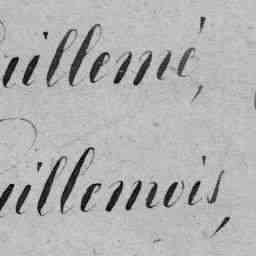 uillemé,
uillemois,